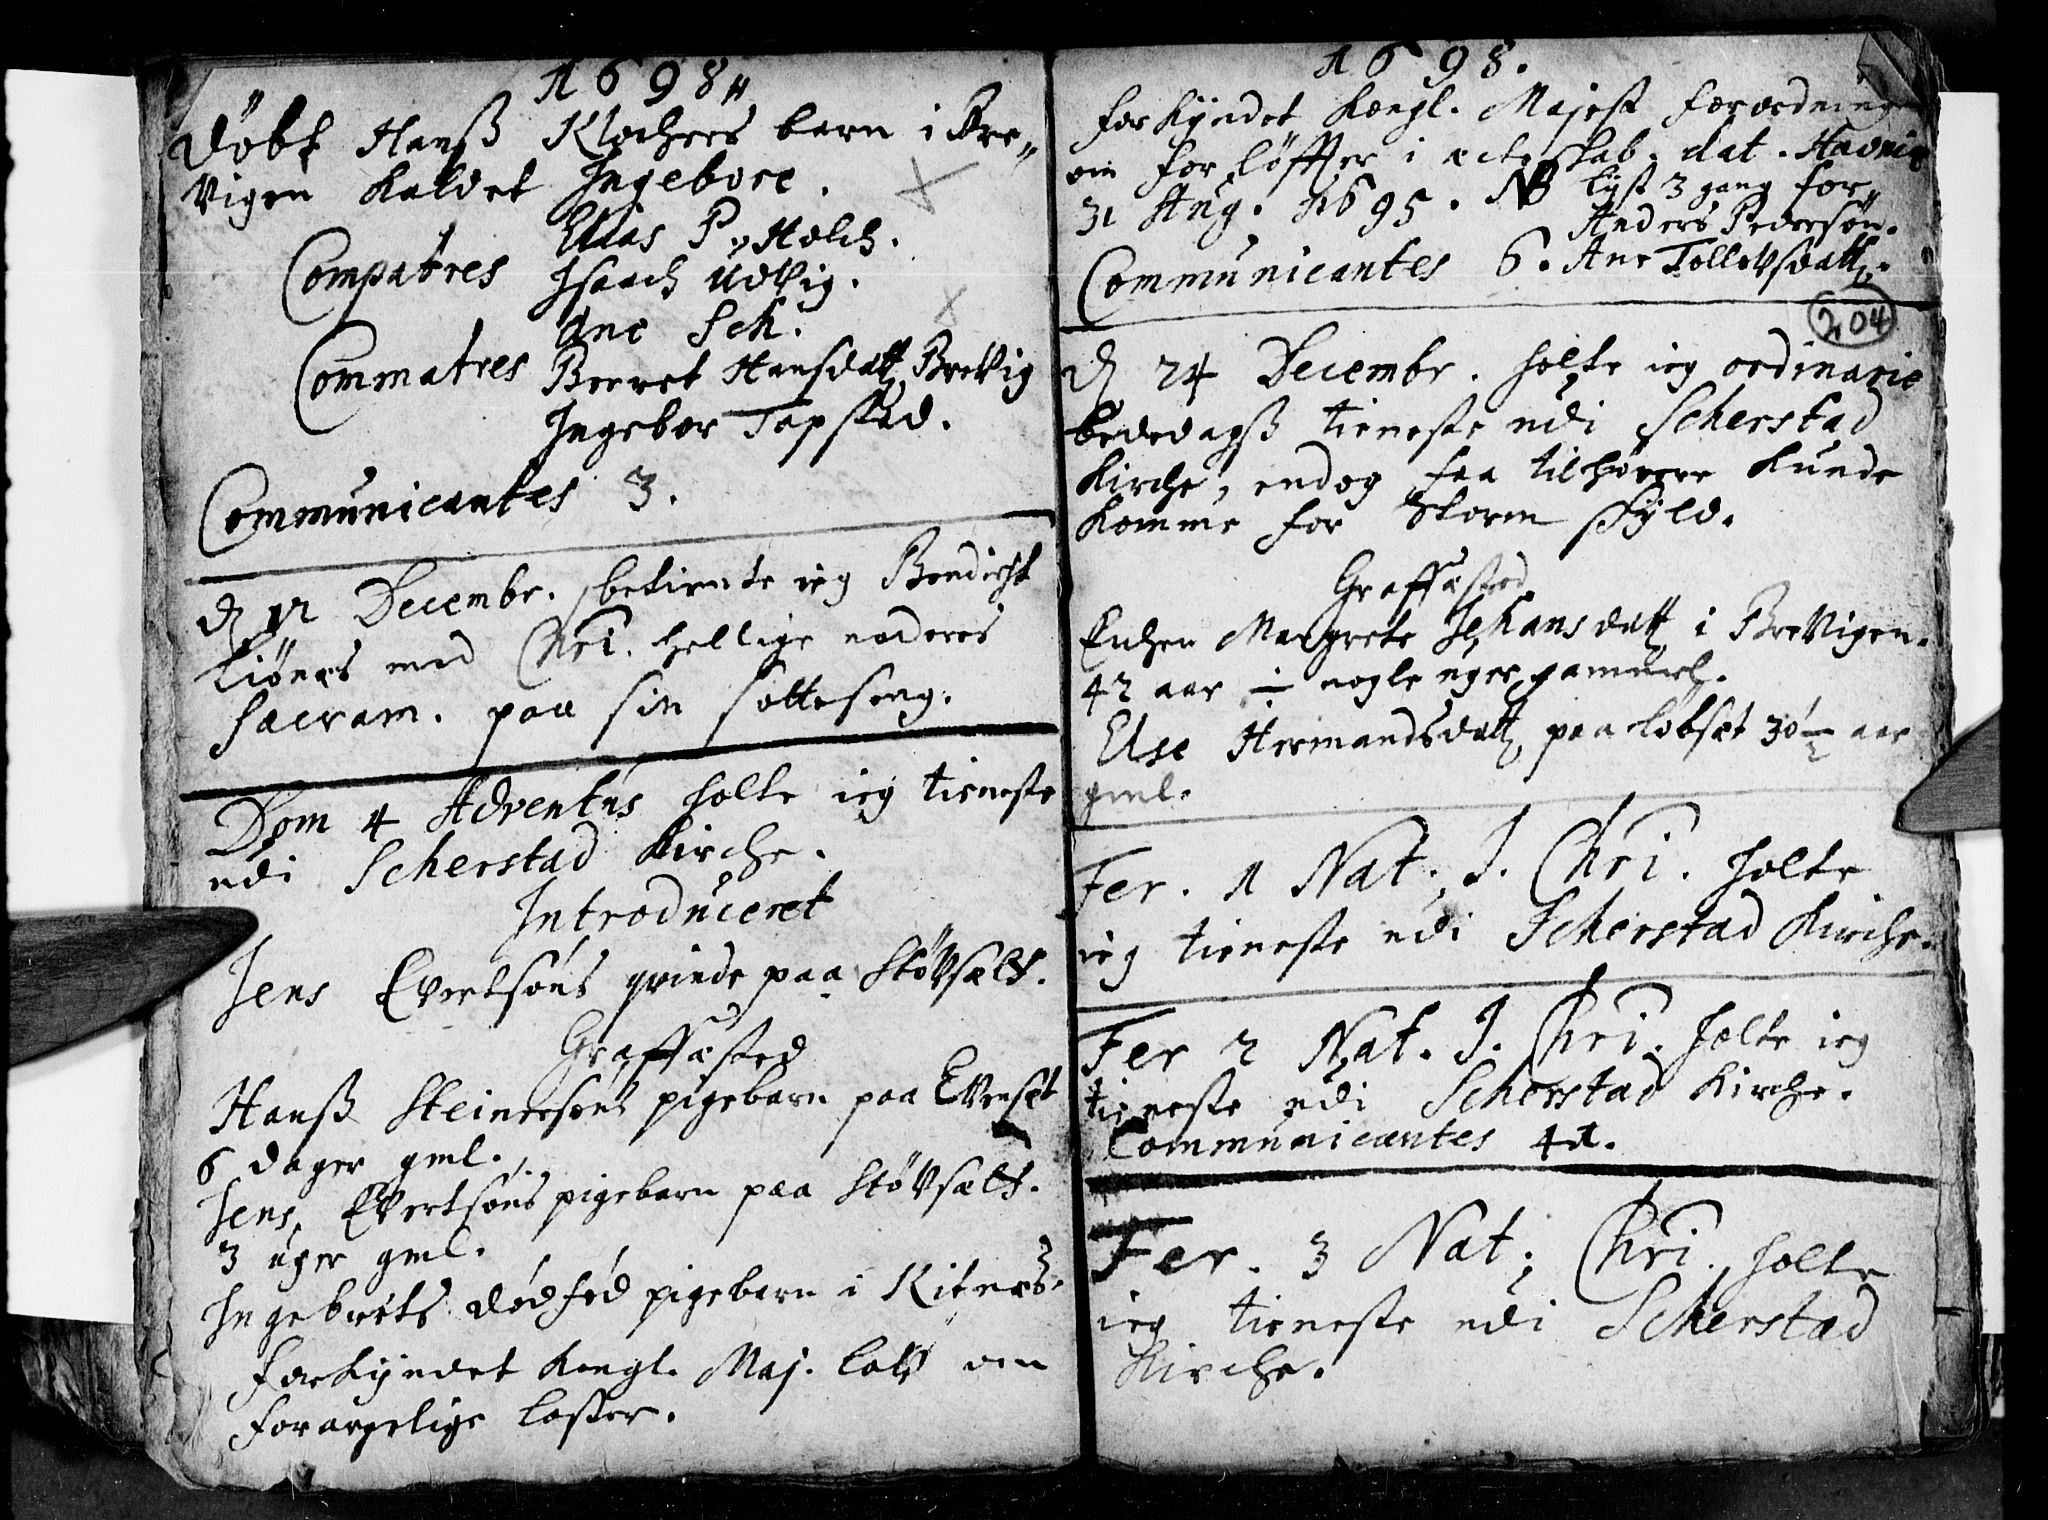 1698„
Döbt Hanß Klochers barn i Bre„
vigen kaldet Ingebore.
Elias P. Holch.
Compatres Isaach Udvig.
Ane Sch.
Commatres Berret Hansdatt, Brevig
Ingebor Tapsted.
Communicantes 3.
d 12 Decembr. betiente ieg Bendicht
Kiönes med Chri. hellige naderes
Sacram. paa sin sotteseng.
Dom 4 Adventus holte ieg tieneste
udi Scherstad Kirche.
Introduceret
Jens Evertsöns qvinde paa Stövsælt.
Graffæsted
Hanß Steinersöns pigebarn paa Evenset
6 dager gml.
Jens Evertsöns pigebarn paa Stövsælt.
3 uger gml.
Ingebrets dödföd pigebarn i Kitnæs.
Forkyndet Kongl. Maj. lov om
forargelige laster.
1698.
Forkyndet Kongl. Majest forordninge
om for löffter i ecteskab. dat. Havniæ
31 Aug. 1695. NB lyst 3 gang for„
Anders Pedersön.
Communicantes 6. Ane Tollevsdatt.
204
d 24 Decembr. holte ieg ordinarie
bededagß tieneste udi Scherstad
Kirche, endog faa tilhörere kunde
komme for Storm skyld.
Graffæsted
Enchen Margrete Johansdatt i Brevigen.
42 aar ÷ nogle uger gammel.
Else Hermandsdatt, paa Löbset 30½ aar
gml.
Fer. 1 Nat. J. Chri. holte
ieg tieneste udi Scherstad Kirche.
Fer 2 Nat. J. Chri. holte ieg
tieneste udi Scherstad Kirche.
Communicantes 41.
Fer. 3 Nat; Chri. holte
ieg tieneste udi Scherstad
Kirche.